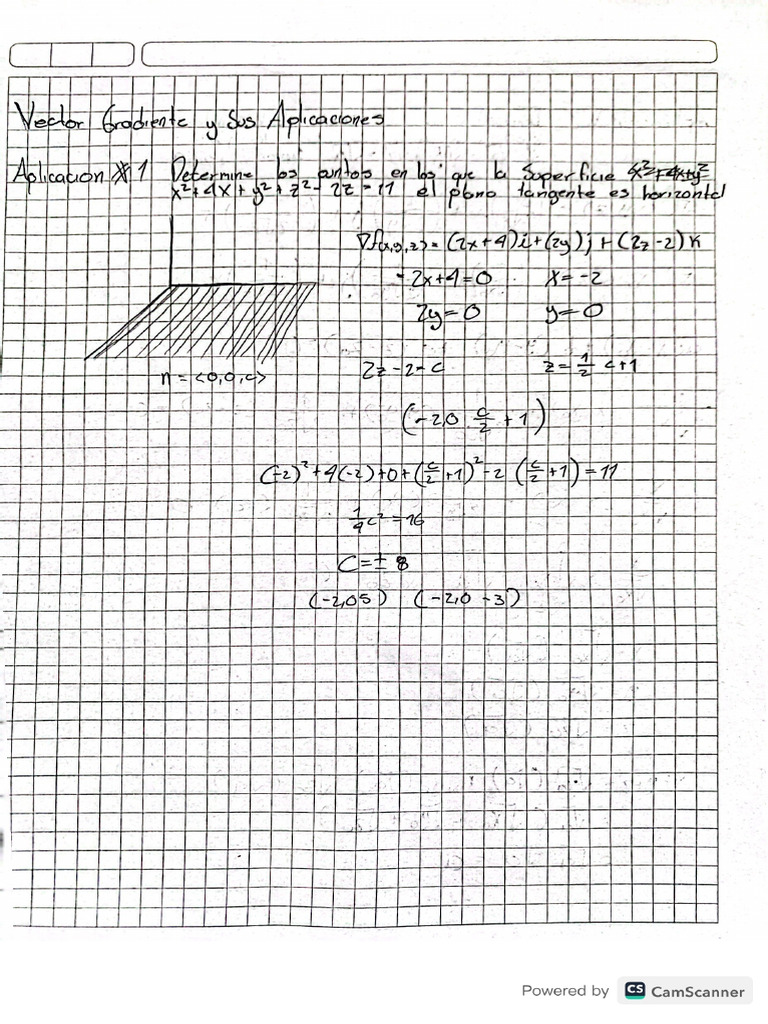 Vector Gradiente y Sus Aplicaciones
Aplicacion #1 Determine los puntos en los que la Superficie 4x²+4x+y²
x²+4x+y²+z²-2z=11 el plano tangente es horizontal
∇f(x,y,z)=(2x+4)i+(2y)j+(2z-2)k
-2x+4=0 x=-2
2y=0 y=0
n=<0,0,c> 2z-2=c z=1/2 c+1
(-2,0 c/2+1)
(-2)²+4(-2)+0+(c/2+1)²-2(c/2+1)=11
1/4c²=16
C=± 8
(-2,05) (-2,0 -3)
Powered by CS CamScanner